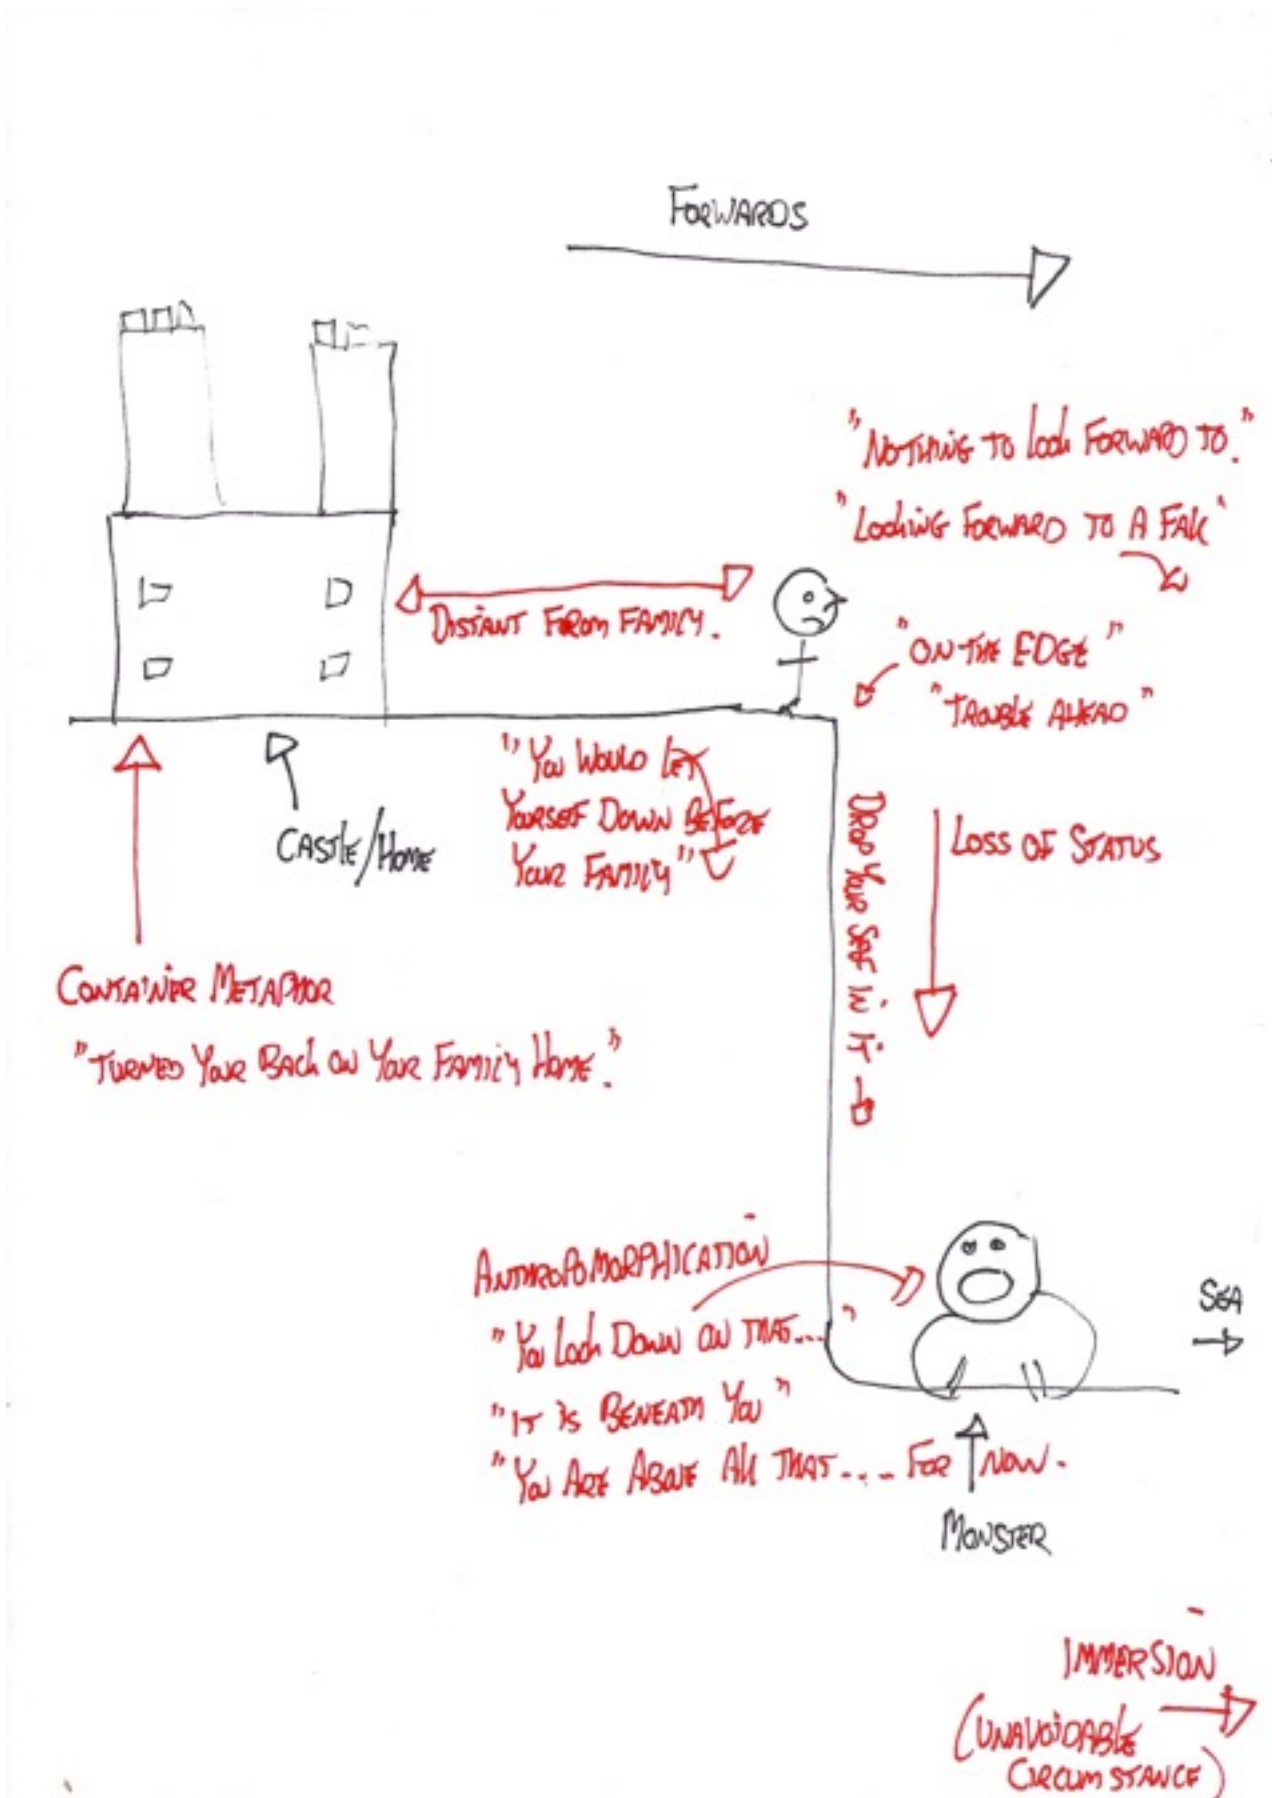 FORWARDS
"NOTHING TO LOOK FORWARD TO."
"LOOKING FORWARD TO A FALL"
DISTANT FROM FAMILY.
"ON THE EDGE"
"TROUBLE AHEAD"
"YOU WOULD LET
YOURSELF DOWN BEFORE
YOUR FAMILY"
CASTLE/HOME
DROP YOUR SELF IN IT
LOSS OF STATUS
CONTAINER METAPHOR
"TURNED YOUR BACK ON YOUR FAMILY HOME."
ANTHROPOMORPHICATION
"YOU LOOK DOWN ON THAT...."
"IT IS BENEATH YOU"
"YOU ARE ABOVE ALL THAT.... FOR NOW.
SEA
MONSTER
IMMERSION
(UNAVOIDABLE
CIRCUMSTANCE)